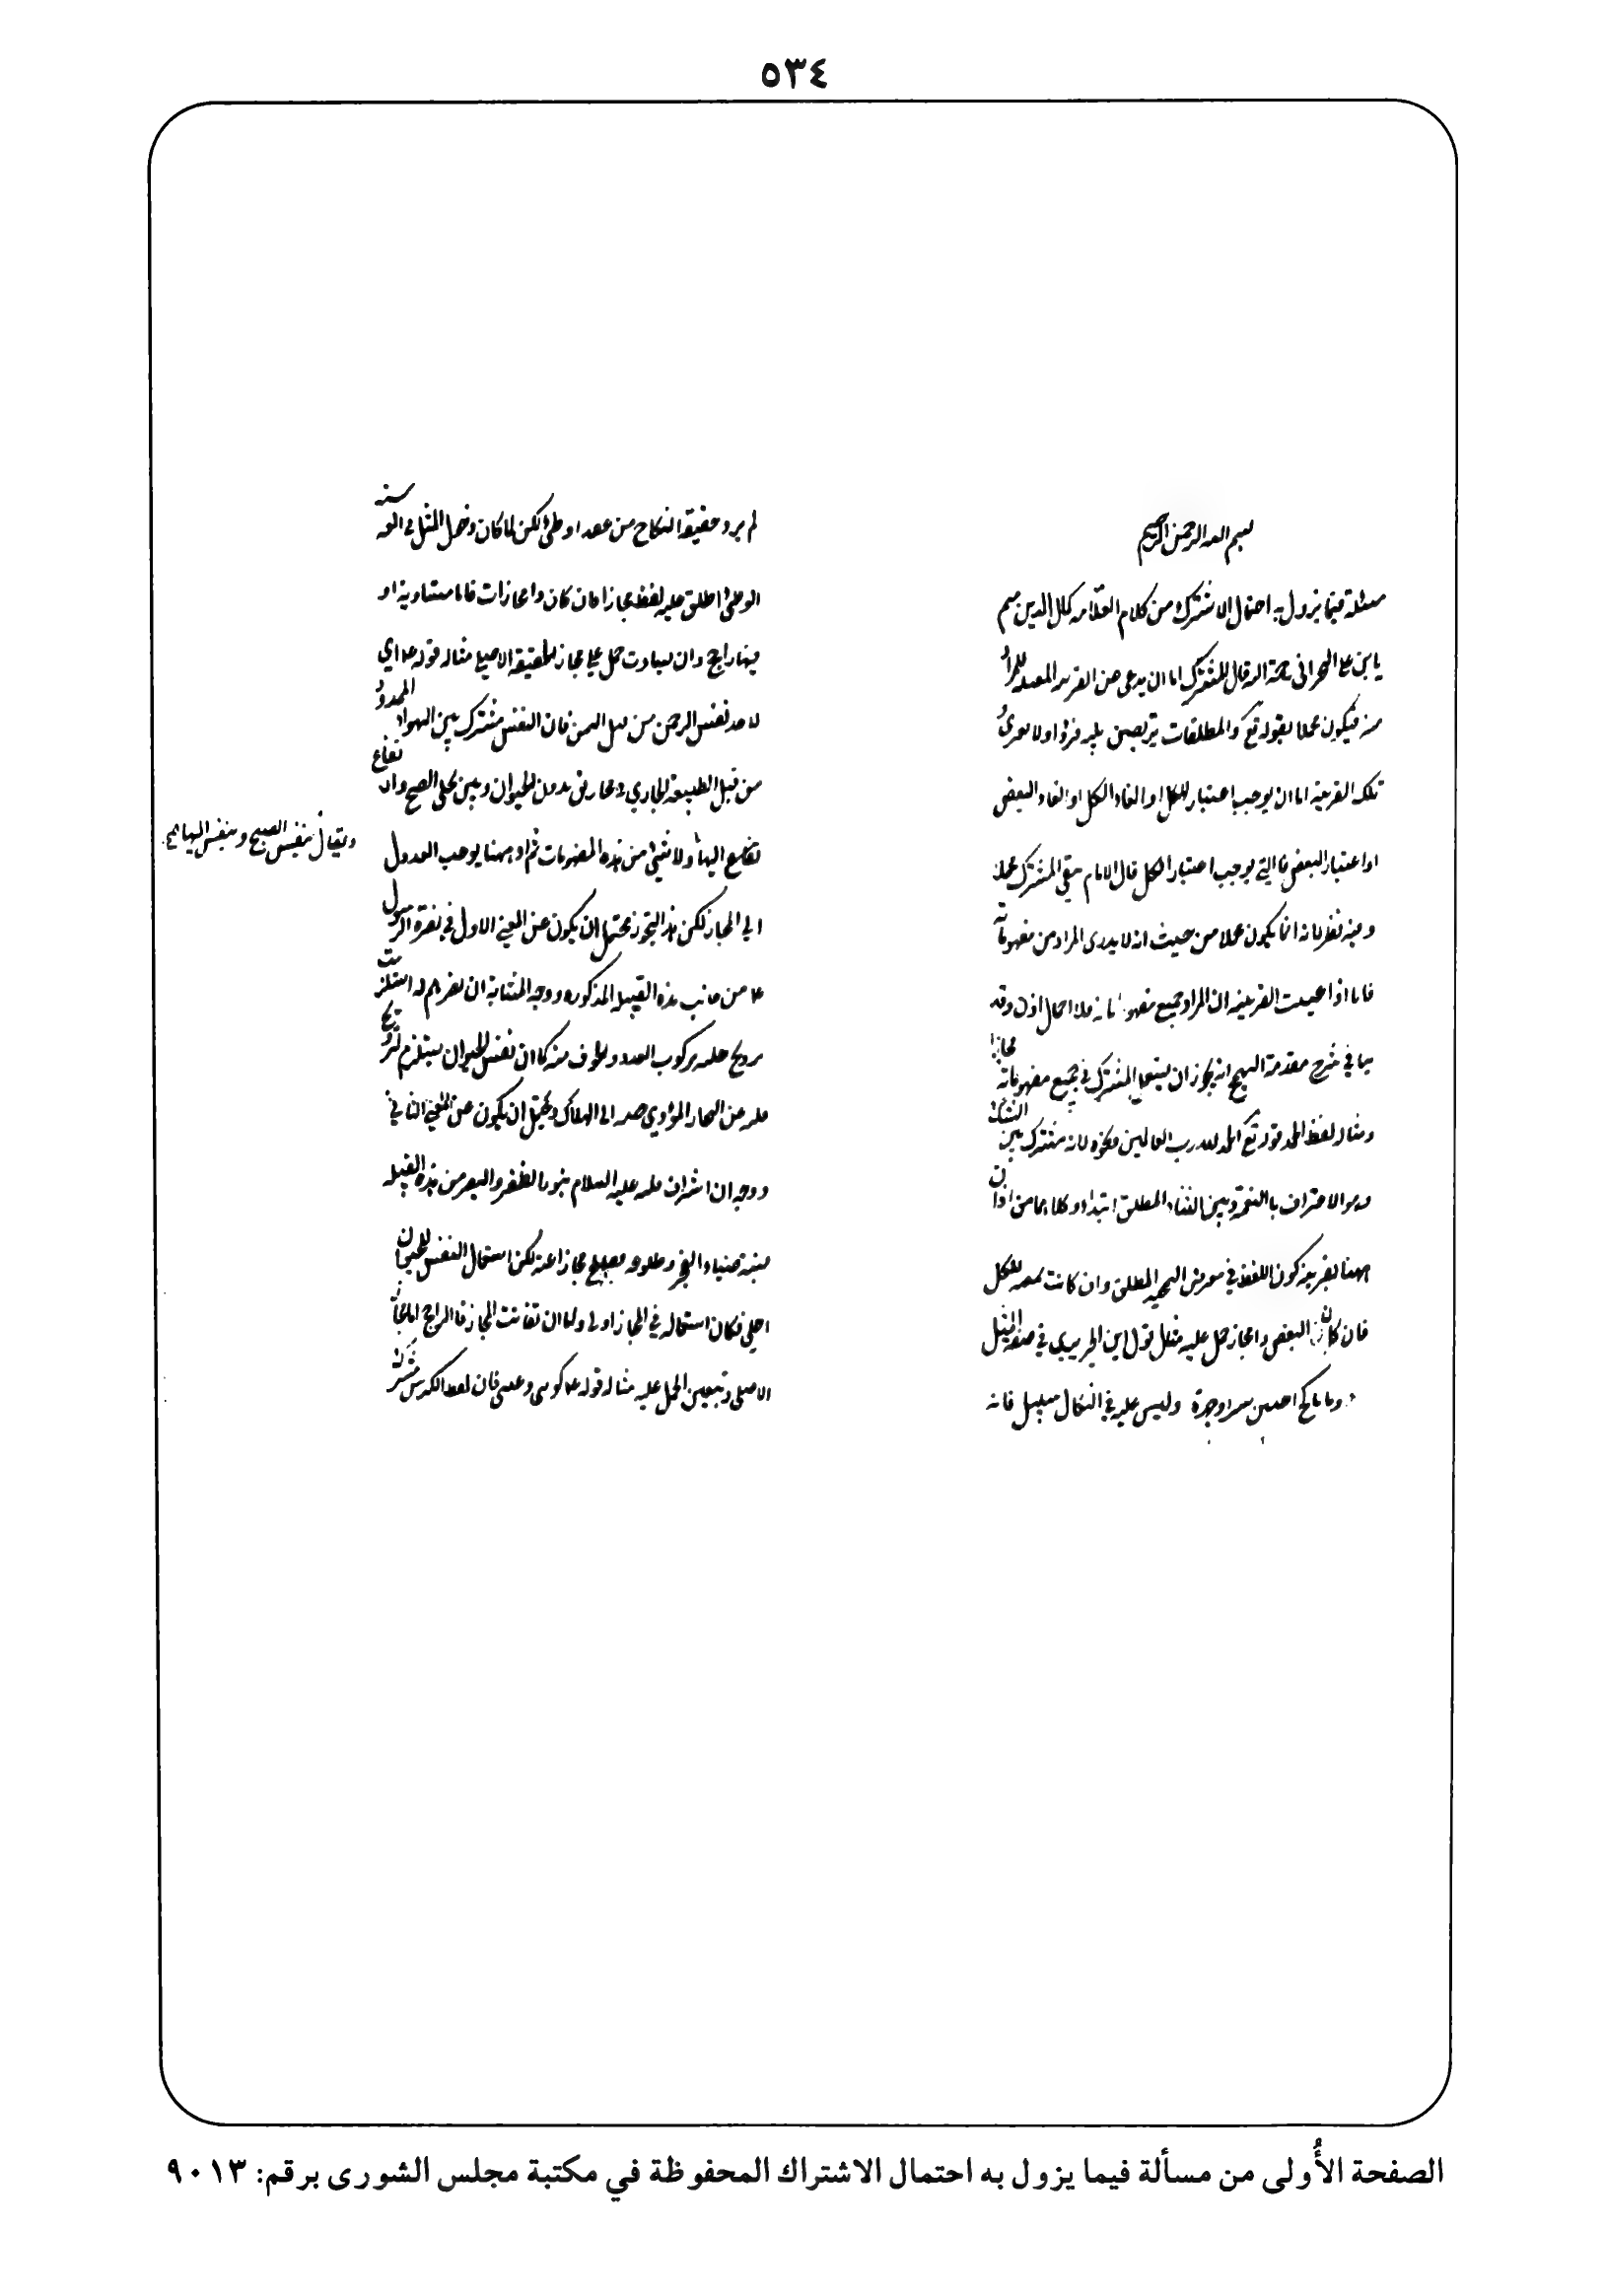 ٥٣٤
بسم الله الرحمن الرحيم
مسئلة فيما يزول به احتمال الاشتراك من كلام العلامه كمال الدين ميثم
ابن على البحرانى رحمة الله قال المشترك اما ان يعرى عن القرينه المراد
منه فيكون مجملا كقوله تع والمطلقات يتربصن ثلثه قروء او لا يعرى و
تلك القرينه اما ان يوجب اعتبار الكل او الغاء الكل او الغاء البعض
او اعتبار البعض فالتي يوجب اعتبار الكل قال الامام بقى المشترك مجملا
وفيه نظر فانه انما يكون مجملا من حيث انه لا يدرى المراد من مفهوماته
فاما اذا عينت القرينه ان المراد جميع مفهوماته فلا اجمال اذن وقد
بينا في شرح مقدمة النهج انه يجوز ان يستعمل المشترك في جميع مفهوماته مجازا
ومثاله لفظ الحمد قوله تع الحمد لله رب العالمين ونحوه لانه مشترك بين
وهو الاعتراف بالنعمة وبين الثناء المطلق ابتداء وكلاهما مرادان
ههنا بقرينه كون اللفظ في معرض التمجيد المطلق وان كانت للكل
فان كان البعض ذا مجاز حمل عليه مثل قول ابن الحريري في صفه الميل
وليس عليه في النكاح سبيل فانه
لم يرد حقيقه النكاح من عقد او وطئ لكن لما كان دخول الميل في
الوطئ اطلق عليه لفظه مجازا فان كان ذا مجازات فاما متساوية او
فيها راجح فان تساوت حمل على مجاز الحقيقه الاصلي مثاله قوله ع اني
لاجد نفس الرحمن من قبل اليمن فان النفس مشترك بين الهواء الممدود
من قبل الطبيعة الجاري في مخارق بدن الحيوان وبين تجلى الصبح و
ويقال تنفس الصبح وتنفس النهار
ولا شئ من هذه المفهومات مراد ههنا يوجب العدول
الى المجاز لكن هذا التجوز يحتمل ان يكون عن المعنى الاول في نصرة الرسول
ع من جانب هذه القبيله المذكوره ووجه المشابهة ان نصرهم له استلزمت
ترويح قلبه من كروب العدو والخوف منه كما ان نفس الحيوان يستلزم ترويح
قلبه عن البخار المؤدي الى الهلاك ويحتمل ان يكون عن المعنى الثاني
ووجه ان اشراق قلبه عليه السلام بنور الظفر والنصر من هذه القبيله
شبه ضياء الفجر وطلوعه فصلح مجازا عنه لكن استعمال النفس للحيوان
اجلى فكان استعماله في المجاز اولى واما ان تفاوتت المجاز فالراجح
الاصلي وتعين الحمل عليه مثاله قوله
الصفحة الأُولى من مسألة فيما يزول به احتمال الاشتراك المحفوظة في مكتبة مجلس الشورى برقم: ٩٠١٣